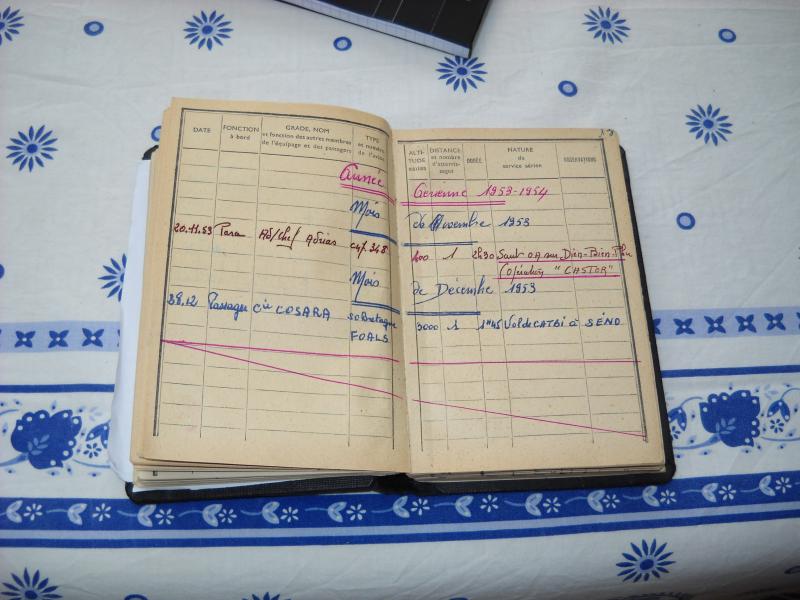 DATE FONCTION à bord GRADE, NOM et fonction des autres membres de l'équipage et des passagers TYPE et numéro de l'avion
ALTITUDE DISTANCE et nombre d'atterrissages DURÉE NATURE du service aérien OBSERVATIONS
Année Aérienne 1953-1954
Mois de Novembre 1953
20.11.53 Para Ad/chef Adrias C47 348 400 1 2h30 Saut O.A sur Dien-Bien-Phu
(Opération "CASTOR")
Mois de Décembre 1953
28.12 Passager Cie COSARA SO Bretagne 3000 1 1H45 Vol de CATBI à SÉNO
FOALS